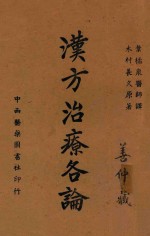 葉橘泉醫師譯
木村長久原著
漢方治療各論
中西醫藥圖書社印行